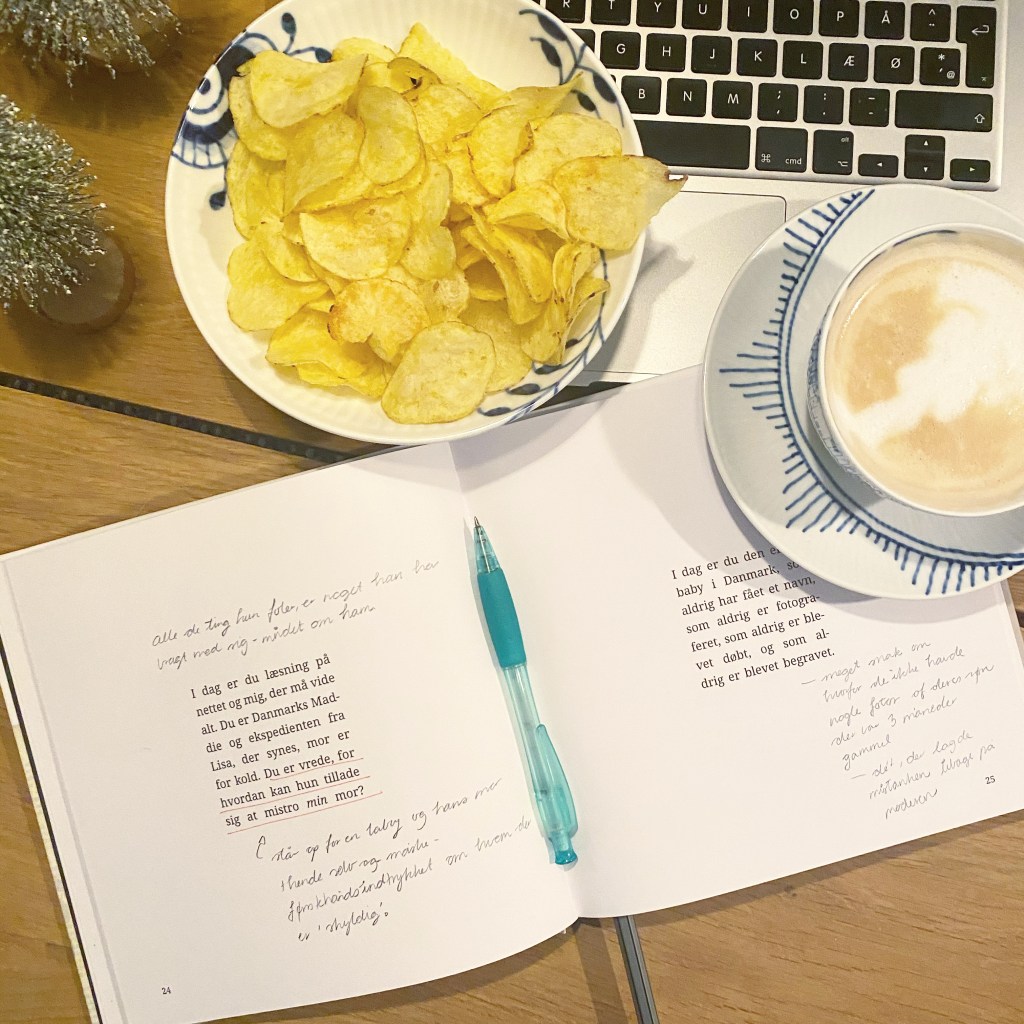 R T Y U I O P Å ^ ¨
G H J K L Æ Ø * ' @
B N M ; , : . _ -
⌘ cmd alt ⌥
alle de ting hun føler, er noget han har
vagt med sig - mindet om ham
I dag er du læsning på
nettet og mig, der må vide
alt. Du er Danmarks Mad-
die og ekspedienten fra
Lisa, der synes, mor er
for kold. Du er vrede, for
hvordan kan hun tillade
sig at mistro min mor?
står op for en baby og hans mor
+ hende selv og måske -
førstehåndsindtrykket om hvem der
er 'skyldig'.
24
I dag er du den
baby i Danmark,
aldrig har fået et navn,
som aldrig er fotogra-
feret, som aldrig er ble-
vet døbt, og som al-
drig er blevet begravet.
— meget snak om
hvorfor de ikke havde
nogle fotos af deres søn
der var 3 måneder
gammel
— det, der lagde
mistanken tilbage på
moderen
25